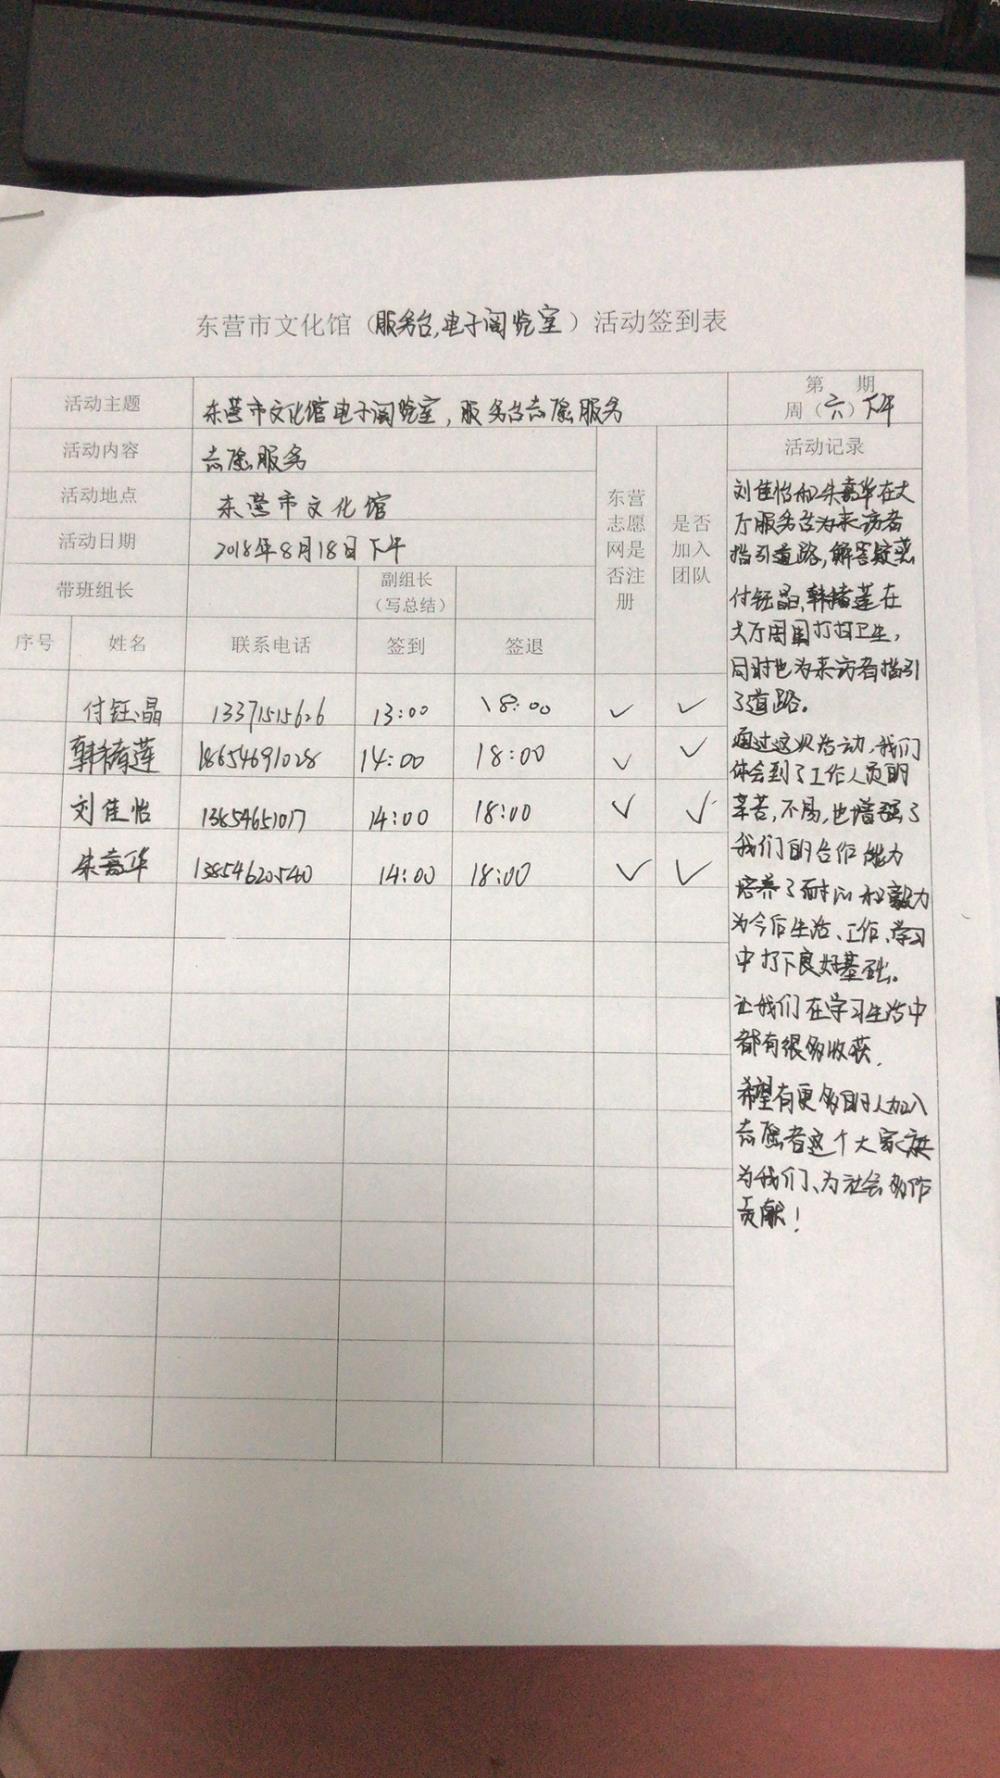 东营市文化馆（服务台,电子阅览室）活动签到表
活动主题 东营市文化馆电子阅览室，服务台志愿服务 第 期 周（六）下午
活动内容 志愿服务
活动地点 东营市文化馆
活动日期 2018年8月18日下午
带班组长 副组长（写总结）
序号 姓名 联系电话 签到 签退 东营志愿网是否注册 是否加入团队
付钰晶 13371515626 13:00 18:00 ✓ ✓
韩绪莲 18654691028 14:00 18:00 ✓ ✓
刘佳怡 13854651017 14:00 18:00 ✓ ✓
朱嘉华 13854620540 14:00 18:00 ✓ ✓
活动记录
刘佳怡和朱嘉华在大
厅服务台为来访者
指引道路,解答疑惑
付钰晶,韩绪莲在
大厅周围打扫卫生,
同时也为来访者指引
了道路。
通过这次活动,我们
体会到了工作人员的
辛苦,不易,也增强了
我们的合作能力
培养了耐心和毅力
为今后生活、工作、学习
中打下良好基础。
让我们在学习生活中
都有很多收获.
希望有更多的人加入
志愿者这个大家庭
为我们、为社会多作
贡献！